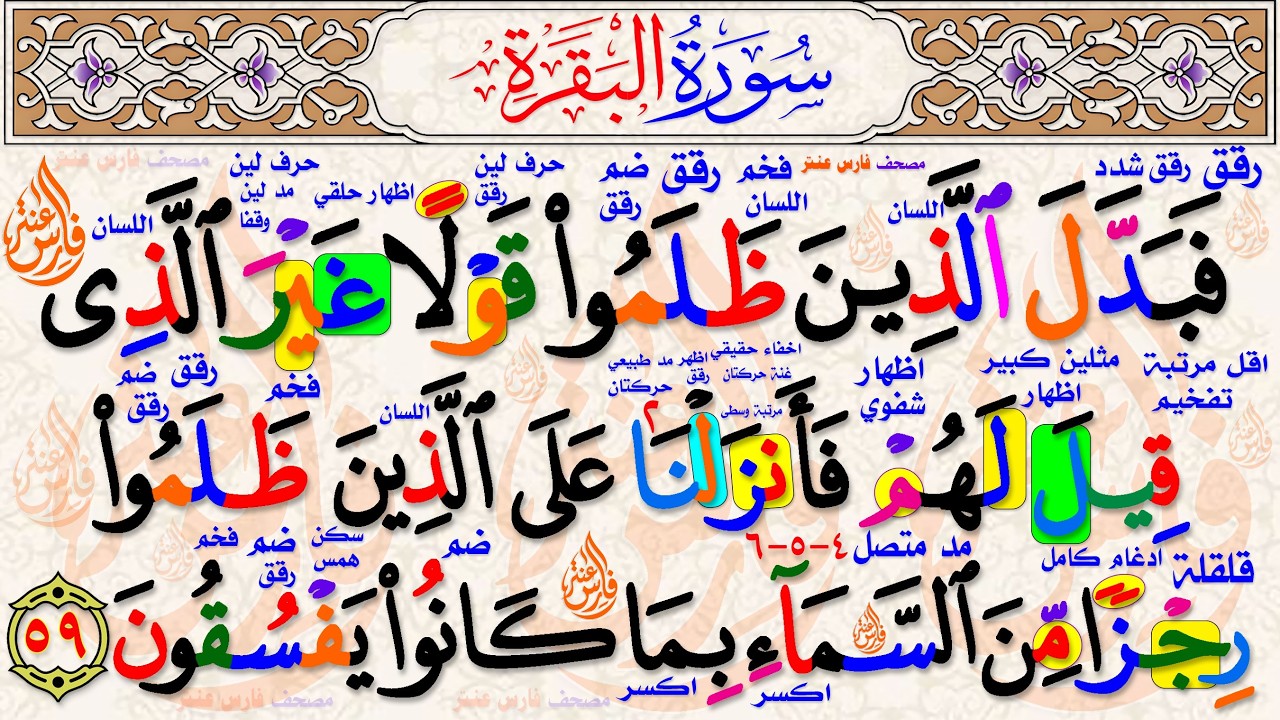 سُورَةُ البَقَرَةِ
رقق رقق شدد مصحف فارس عنتر فخم رقق ضم حرف لين حرف لين مصحف فارس عنتر
اللسان اللسان رقق رقق اظهار حلقي مد لين وقفا اللسان
فَبَدَّلَ ٱلَّذِينَ ظَلَمُواْ قَوْلًا غَيْرَ ٱلَّذِى
فارس عنتر
اقل مرتبة تفخيم مثلين كبير اظهار اظهار شفوي اخفاء حقيقي غنة حركتان مرتبة وسطى اظهر رقق مد طبيعي حركتان ٢ اللسان فخم رقق ضم رقق
قِيلَ لَهُمْ فَأَنزَلْنَا عَلَى ٱلَّذِينَ ظَلَمُواْ
قلقلة ادغام كامل مد متصل ٤-٥-٦ فارس عنتر ضم سكن همس ضم فخم رقق
رِجْزًا مِّنَ ٱلسَّمَآءِ بِمَا كَانُواْ يَفْسُقُونَ ٥٩
اكسر اكسر
مصحف فارس عنتر مصحف فارس عنتر